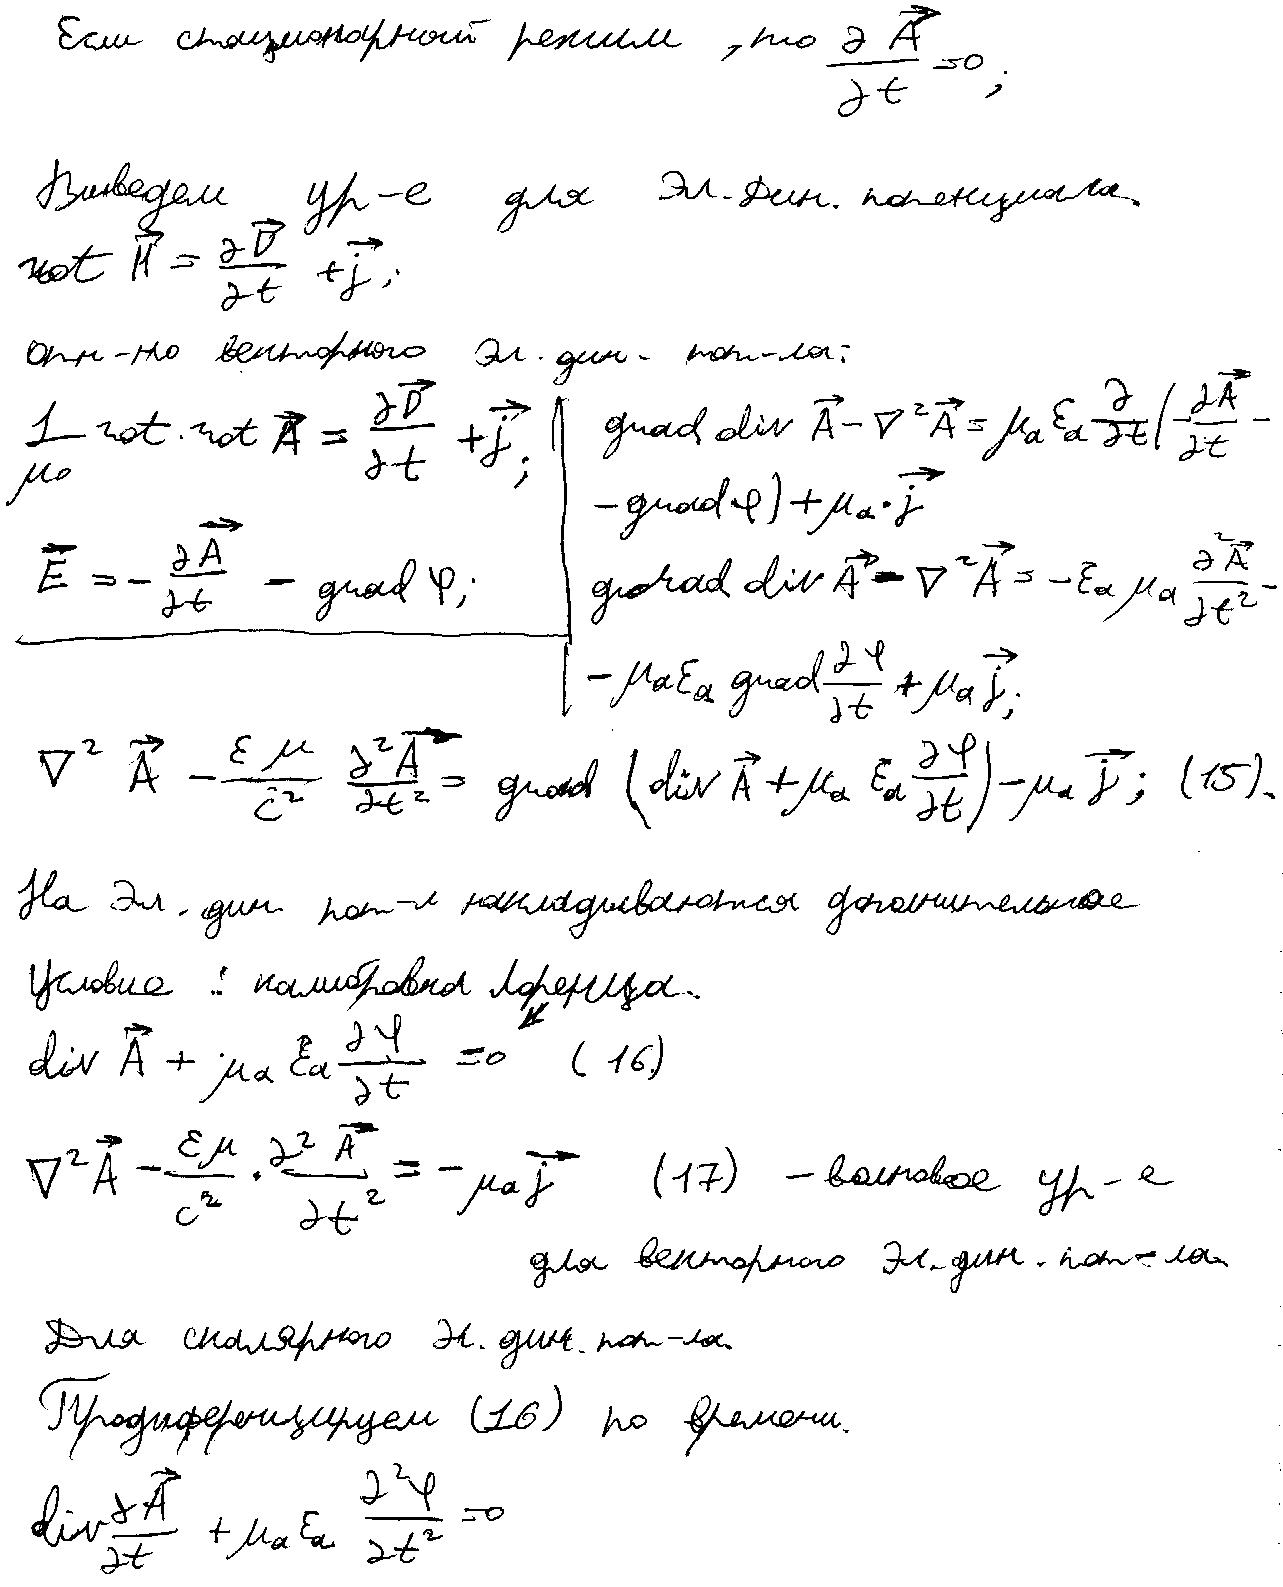 Если стационарный режим, то ∂A⃗/∂t =0;
Выведем ур-е для Эл.дин. потенциала.
rot H⃗ = ∂D⃗/∂t + j⃗;
отн-но векторного Эл.дин. пот-ла:
1/μ₀ rot·rot A⃗ = ∂D⃗/∂t + j⃗;
E⃗ = - ∂A⃗/∂t - grad φ;
grad div A⃗ - ∇²A⃗ = μₐ εₐ ∂/∂t (-∂A⃗/∂t -
- grad φ) + μₐ · j⃗
grad div A⃗ - ∇²A⃗ = -εₐ μₐ ∂²A⃗/∂t² -
- μₐ εₐ grad ∂φ/∂t + μₐ j⃗;
∇² A⃗ - εμ/c² ∂²A⃗/∂t² = grad (div A⃗ + μₐ εₐ ∂φ/∂t) - μₐ j⃗; (15).
На Эл.дин. пот-л накладываются дополнительное
условие: калибровка Лоренца.
div A⃗ + μₐ εₐ ∂φ/∂t =0 (16)
∇²A⃗ - εμ/c² · ∂²A⃗/∂t² = - μₐ j⃗ (17) - волновое ур-е
для векторного Эл.дин. пот-ла.
Для скалярного Эл.дин. пот-ла.
Продиференцируем (16) по времени.
div ∂A⃗/∂t + μₐ εₐ ∂²φ/∂t² =0